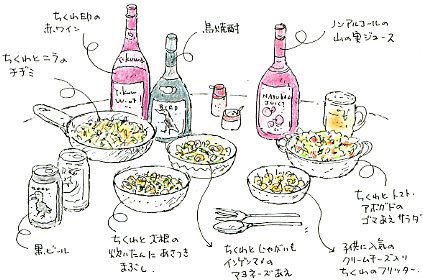 ちくわ印の
赤ワイン
鳥焼酎
ノンアルコールの
山の実ジュース
ちくわとニラの
チヂミ
BIRD
JUICE
ちくわとトマト・
アボガドの
ゴマあえサラダ
黒ビール
ちくわと大根の
炊いたんにあさつき
まぶし
ちくわとじゃがいも
インゲンマメの
マヨネーズあえ
子供に人気の
クリームチーズ入り
ちくわのフリッター